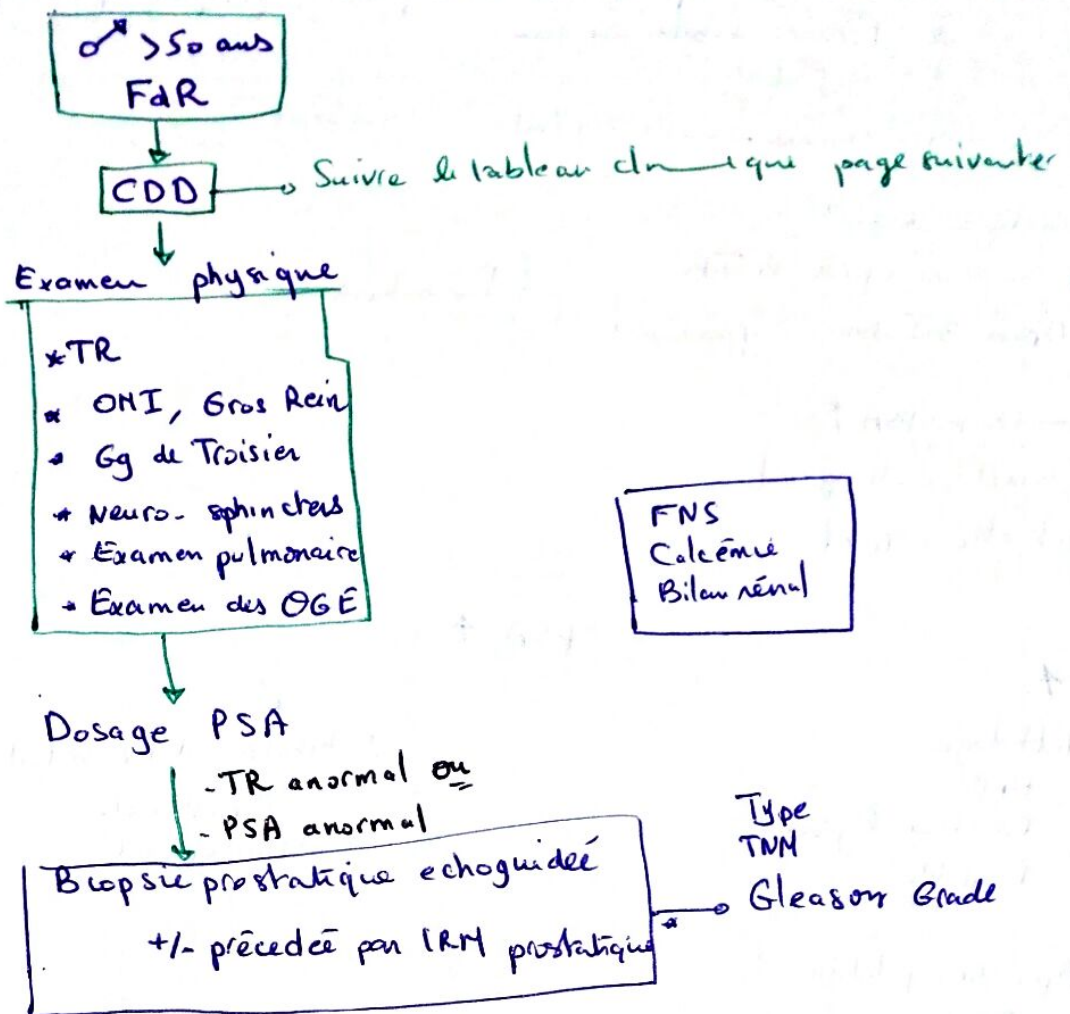 ♂ >50 ans
FdR
CDD
Suivre le tableau clinique page suivante
Examen physique
*TR
* OMI, Gros Rein
* Gg de Troisier
* Neuro- sphincters
* Examen pulmonaire
* Examen des OGE
FNS
Calcémie
Bilan rénal
Dosage PSA
- TR anormal ou
- PSA anormal
Biopsie prostatique echoguideé
+/- précedeé par IRM prostatique
Type
TNM
Gleason Grade